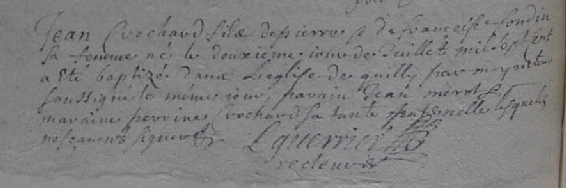 Jean Crochard fils de pierre & de francoise fondin
sa femme né le douxieme iour de Juillet mil sept cent
a eté baptizé dans Leglise de quilly par moy recteur
soussigné le même iour parain Jean merot
maraine perrine Crochard sa tante paternelle lesquels
ne scavent signer
Lguerrier
recteur